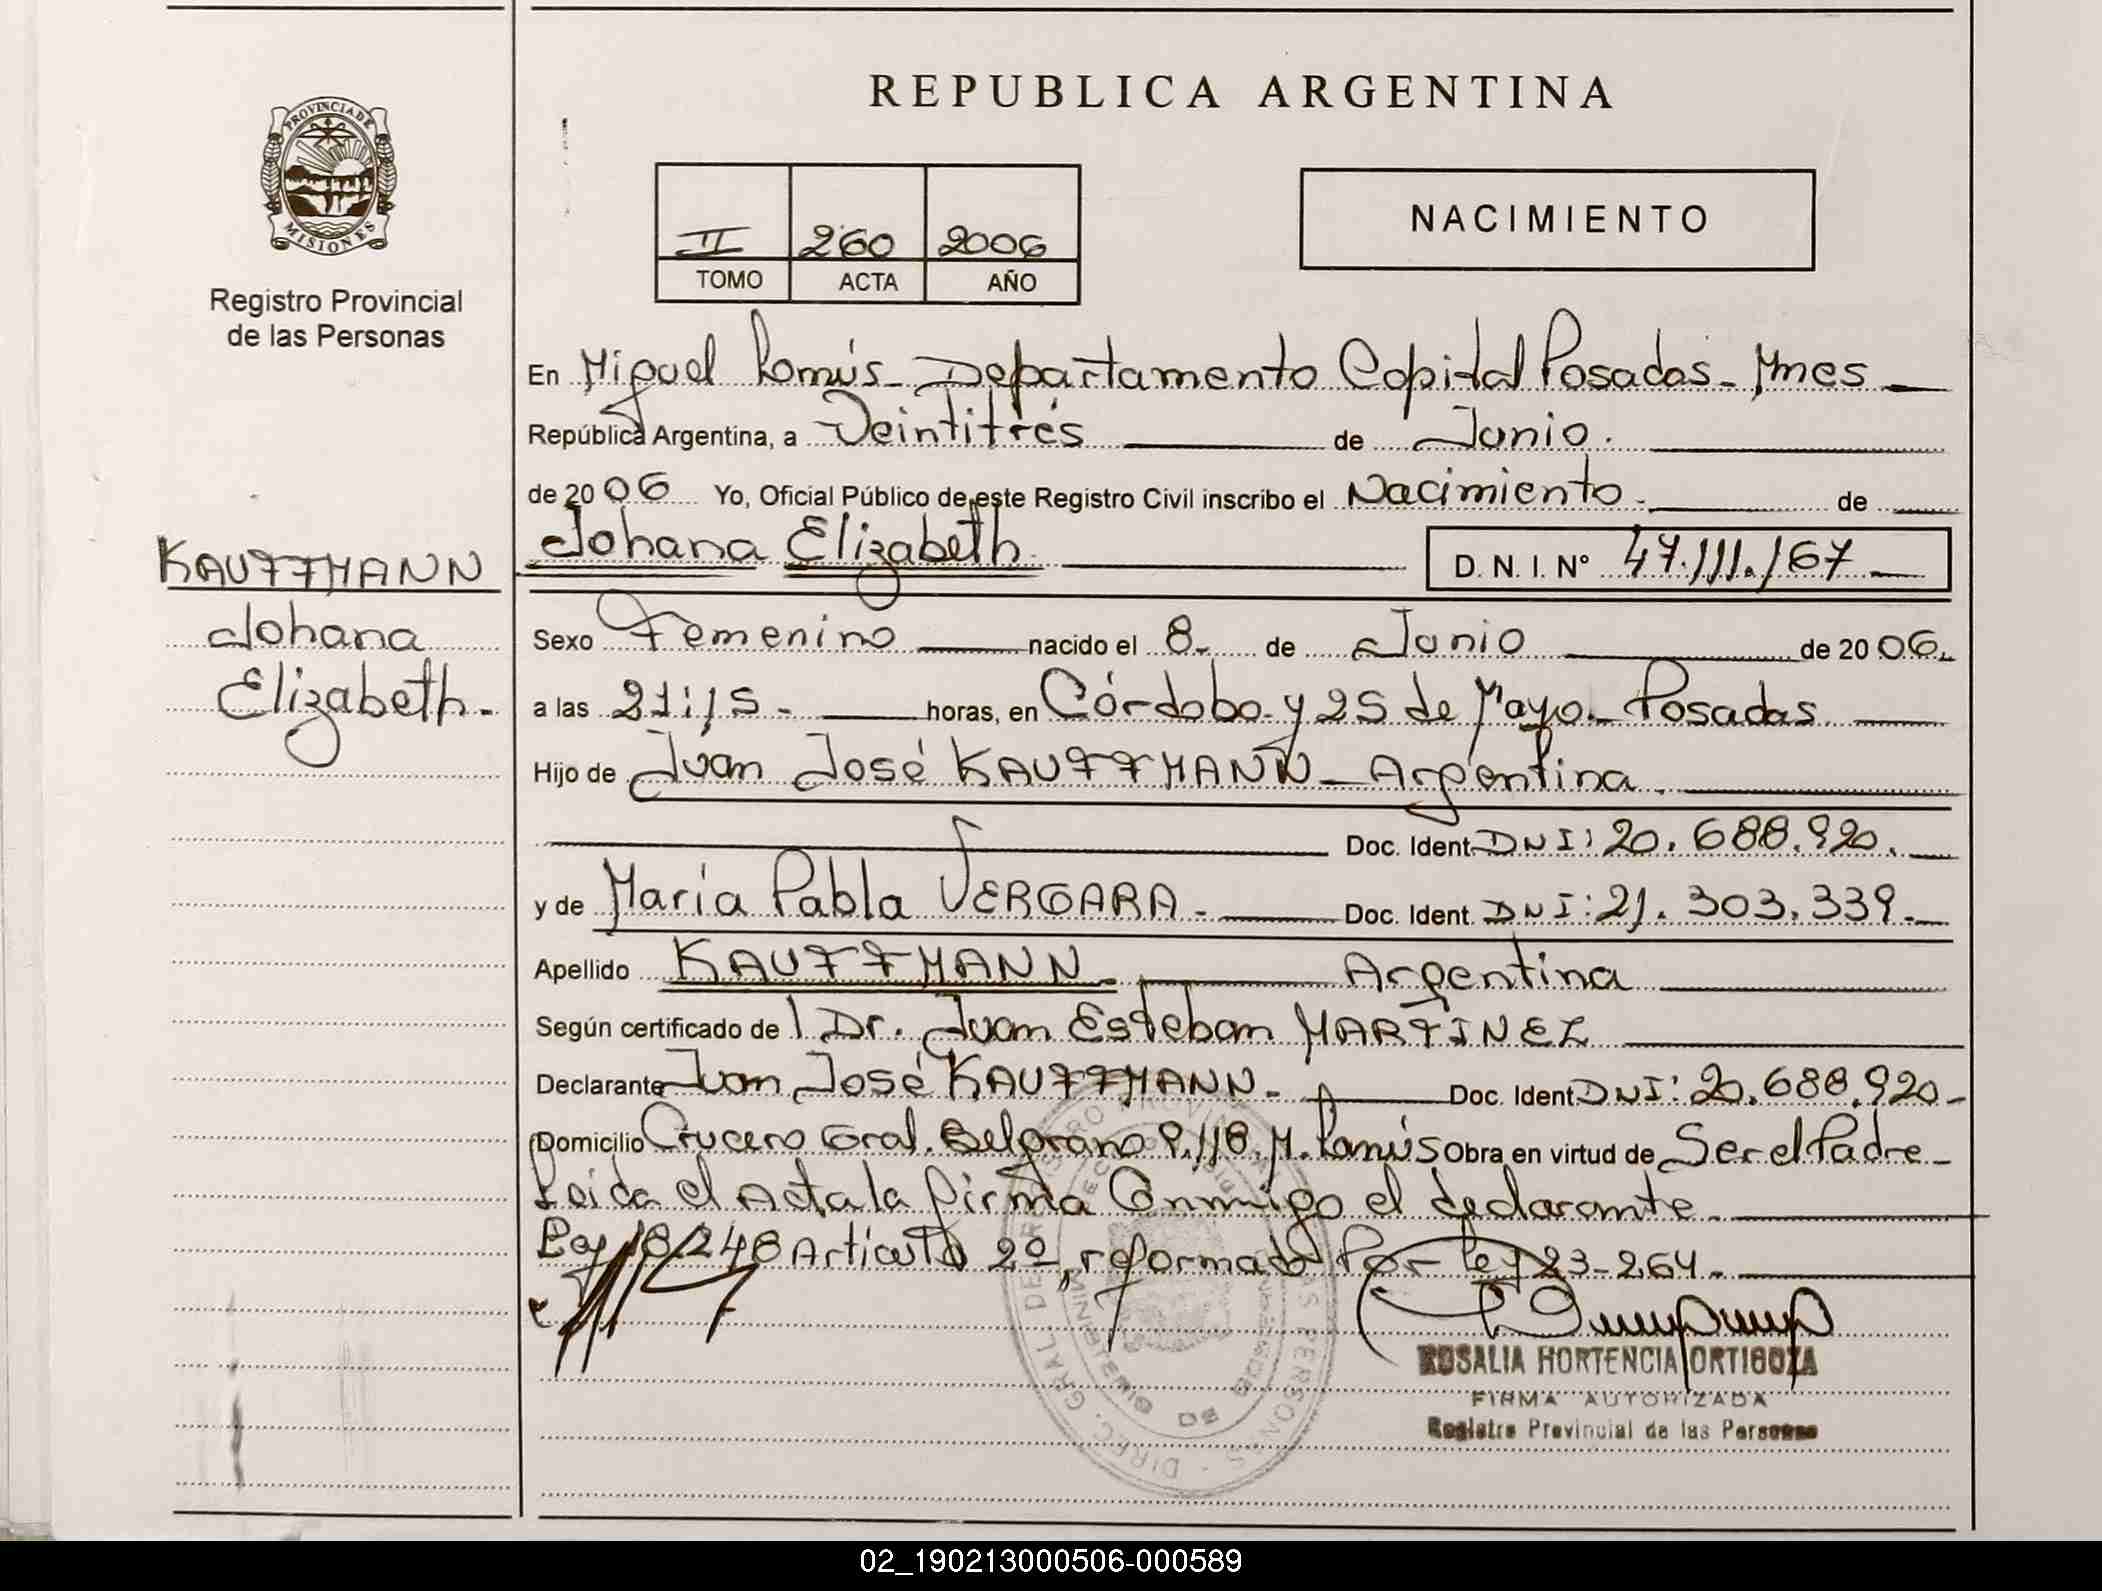 REPUBLICA ARGENTINA
PROVINCIA DE
MISIONES
Registro Provincial
de las Personas
II 260 2006
TOMO ACTA AÑO
NACIMIENTO
En Miguel Lanús - Departamento Capital Posadas - Mnes
República Argentina, a Veintitrés de Junio.
de 2006 Yo, Oficial Público de este Registro Civil inscribo el Nacimiento. de
Johana Elizabeth D. N. I. Nº 47.111.167
KAUFFMANN
Johana
Elizabeth.
Sexo Femenino nacido el 8. de Junio de 2006.
a las 21:15 - horas, en Córdoba y 25 de Mayo - Posadas
Hijo de Juan José KAUFFMANN - Argentina
Doc. Ident. DNI: 20.688.920.
y de María Pabla VERGARA - Doc. Ident. DNI: 21.303.339.
Apellido KAUFFMANN - Argentina
Según certificado de Dr. Juan Esteban MARTINEZ
Declarante Juan José KAUFFMANN - Doc. Ident. DNI: 20.688.920 -
Domicilio Crucero Gral. Belgrano 9.118. M. Lanús Obra en virtud de Ser el Padre -
Leida el Acta la firma Conmigo el declarante
Ley 18.248 Articulo 2º, reformado Por ley 23-264.
ROSALIA HORTENCIA ORTIGOZA
FIRMA AUTORIZADA
Registro Provincial de las Personas
02_190213000506-000589